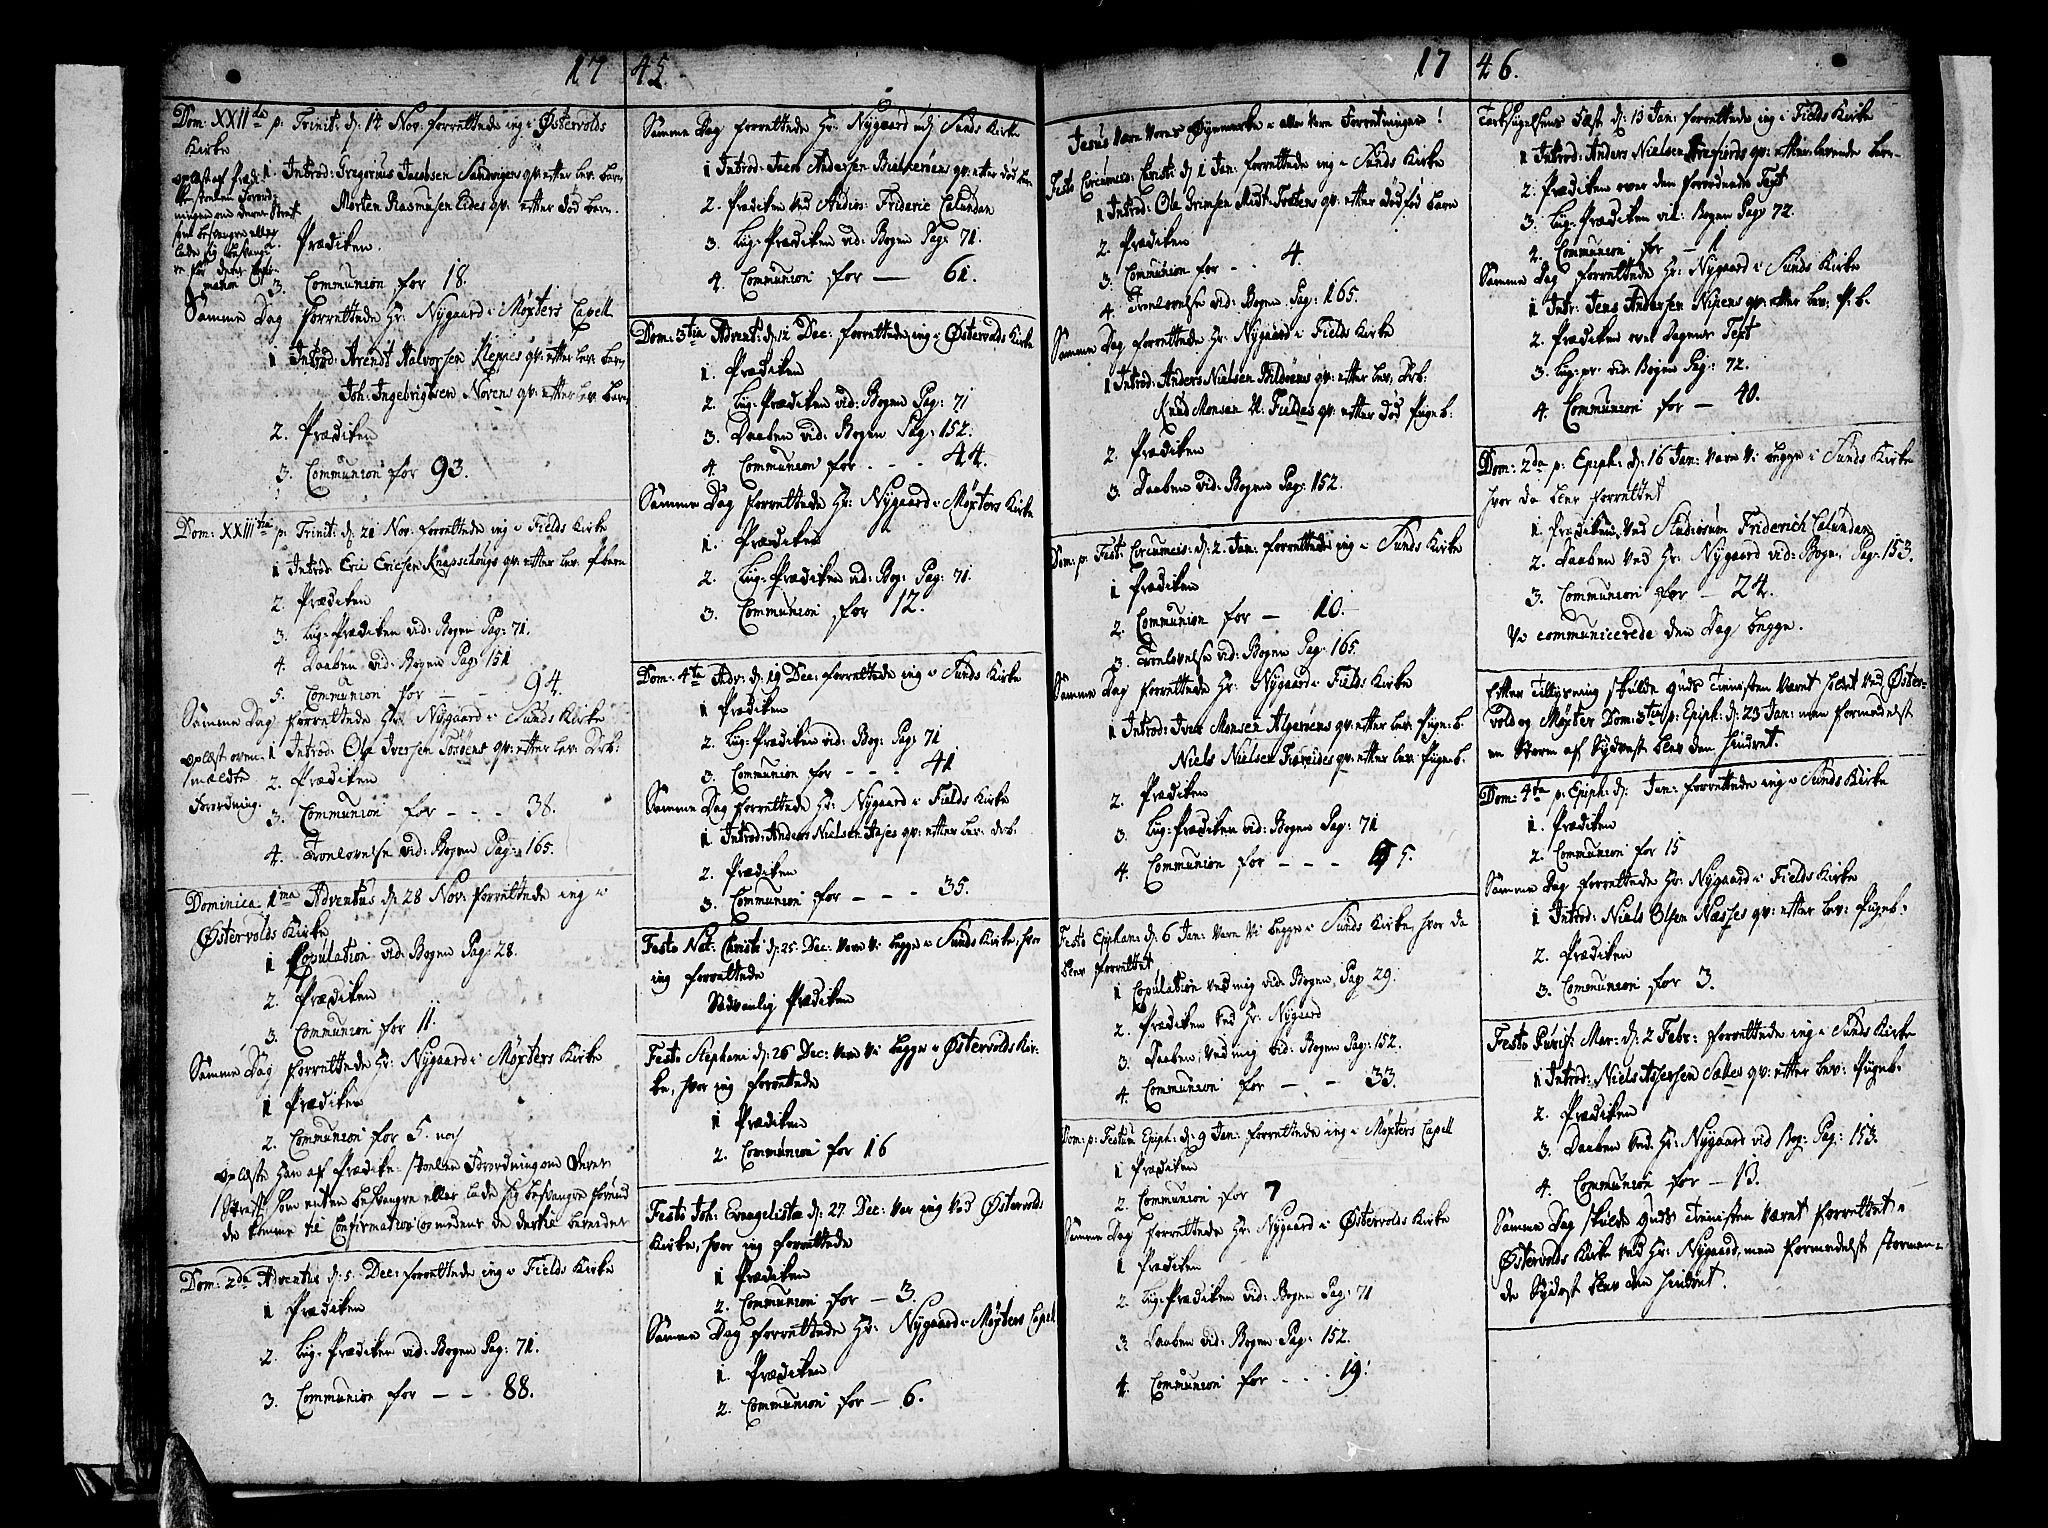 17 45.
Dom: XXII da p: Trinit: d: 14 Nov: forrettede ieg i Østervolds
Kirke
oplæst af Prædi-
kestoelen Forord-
ningen om deres Straf
som besvangre eller
lade sig besvang-
re før deres Confir-
mation
1 Introd: Gregorius Jacobsen Sandvigens qv: efter lev: barn
Morten Rasmusen Eides qv: efter død barn.
Prædiken.
3. Communion for 18.
Samme Dag forrettede Hr: Nygaard i Møxters Capell
1 Introd: Arendt Halvorsen Klepies qv: efter lev: barn
Joh: Ingebrigtsen Norens qv: efter lev: barn
2. Prædiken
3. Communion for 93.
Dom: XXIII tia p: Trinit: d: 21 Nov: forrettede ieg i Fields Kirke
1 Introd: Eric Ericsen Knapschougs qv: efter lev: P:barn
2. Prædiken
3. Liig-Prædiken vid: Bogen Pag: 71.
4. Daaben vid: Bogen Pag: 151
5. Communion for — - 94.
Samme Dag forrettede Hr: Nygaard i Sunds Kirke
oplæst oven-
mældte
Forordning.
1 Introd: Ole Iversen Toføens qv: efter lev: Drb:
2. Prædiken
3. Communion for - - - 38.
4. Tronlovelse vid: Bogen Pag: 165.
Dominica 1ma Adventus d: 28 Nov: forrettede ieg i
Østervolds Kirke
1 Copulation vid: Bogen Pag: 28.
2. Prædiken
3. Communion for 11.
Samme Dag forrettede Hr: Nygaard i Møxters Kirke
1 Prædiken
2. Communion for 5. noch
oplæste Han af Prædike-stoelen Forordning om deres
Straf, som enten besvangre eller lade sig besvangre førend
de komme til Confirmation og medens de dertil beredes
Dom: 2da Adventus d: 5 Dec: forrettede ieg i Fields Kirke
1 Prædiken
2. Liig-Prædiken vid: Bogen Pag: 71.
3. Communion for — - 88.
Samme Dag forrettede Hr: Nygaard udj Sunds Kirke
1 Introd: Jacob Andersen qv: efter død barn
2. Prædiken ved Studios: Frideric Calundan
3. Liig-Prædiken vid: Bogen Pag: 71.
4. Communion for — 61.
Dom: 3tia Advent: d: 12 Dec: forrettede ieg i Østervolds Kirke
1. Prædiken
2. Liig-Prædiken vid: Bogen Pag: 71
3. Daaben vid: Bogen Pag: 152.
4. Communion for - - - 44.
Samme Dag forrettede Hr: Nygaard i Møxters Kirke
1. Prædiken
2. Liig-Prædiken vid: Bog: Pag: 71.
3. Communion for 12.
Dom: 4ta Adv: d: 19 Dec: forrettede ieg i Sunds Kirke
1 Prædiken
2. Liig-Prædiken vid: Bog: Pag: 71
3. Communion for - - - 41
Samme Dag forrettede Hr: Nygaard i Fields Kirke
1 Introd: Anders Nielsen qv: efter lev: drb:
2. Prædiken
3. Communion for — - 35.
Festo Nat: Christi d: 25 Dec: vare Vi begge i Sunds Kirke, hvor
ieg forrettede
Sædvanlig Prædiken
Festo Stephani d: 26 Dec: vare Vi begge i Østervolds Kir-
ke, hvor ieg forrettede
1 Prædiken
2. Communion for 16
Festo Joh: Evangelistæ d: 27 Dec: var ieg ved Østervolds
Kirke, hvor ieg forrettede
1 Prædiken
2. Communion for — 3.
Samme Dag forrettede Hr: Nygaard i Møxters Capel
1. Prædiken
2. Communion for — 6.
17 46.
Jesus være vores Øyemerke i alle vore Forretninger!
Festo Circumcis: Christi d: 1 Jan: forrettede ieg i Sunds Kirke
1 Introd: Ole Grimsen Midt-Tvetens qv: efter dødfød barn
2. Prædiken
3. Communion for - - 4.
4. Tronlovelse vid: Bogen Pag: 165.
Samme Dag forrettede Hr: Nygaard i Fields Kirke
1 Introd: Anders Nielsen Bildøens qv: efter lev: Drb:
Knud Monsen N: Fieldes qv: efter død Pigeb:
2. Prædiken
3. Daaben vid: Bogen Pag: 152.
Dom: p: Fest: Circumcis: d: 2. Jan: forrettede ieg i Sunds Kirke
1 Prædiken
2. Communion for — 10.
3. Tronlovelse vid: Bogen Pag: 165
Samme Dag forrettede Hr: Nygaard i Fields Kirke
1 Introd: Iver Monsen Algerøens qv: efter lev: Pigeb:
Niels Nielsen qv: efter lev: Pigeb.
2. Prædiken
3. Liig-Prædiken vid: Bogen Pag: 71
4. Communion for - - - 5.
Festo Epiphan: d: 6 Jan: vare Vi begge i Sunds Kirke, hvor da
blev forrettet
1 Copulation ved mig vid: Bogen Pag 29.
2. Prædiken ved Hr: Nygaard
3. Daaben ved mig vid: Bogen Pag: 152.
4. Communion for — - 33.
Dom: p: Festum Epiph: d: 9 Jan: forrettede ieg i Møxters Capell
1 Prædiken
2. Communion for 7
Samme Dag forrettede Hr: Nygaard i Østervolds Kirke
1 Prædiken
2. Liig-Prædiken vid: Bogen Pag: 71
3. Daaben vid: Bogen Pag: 152.
4. Communion for - - - 19.
Taksigelsens Fæst d: 13 Jan: forrettede ieg i Fields Kirke
1 Introd: Anders Nielsen qv: efter levende barn
2. Prædiken over den forordnede Text
3. Liig-Prædiken vid: Bogen Pag 72.
4. Communion for — 1
Samme Dag forrettede Hr: Nygaard i Sunds Kirke
1 Intr: Jens Andersen Nipens qv: efter lev: P: b.
2. Prædiken over Dagens Text
3. Liig-pr: vid: Bogen Pag: 72.
4. Communion for — 40.
Dom: 2da p: Epiph: d: 16 Jan: vare Vi begge i Sunds Kirke
hvor da blev forrettet
1. Prædiken ved Studiosum Friderich Calundan
2. Daaben ved Hr: Nygaard vid: Bogen Pag: 153.
3. Communion for — 24.
Vi communicerede den Dag begge.
Efter Tillysning skulde Guds Tienisten været holdt ved Øster-
vold og Møxter Dom: 3tia p: Epiph: d: 23 Jan: men formedelst
en Storm af Sydvest blev den hindret.
Dom: 4ta p: Epiph: d: Jan: forrettede ieg i Sunds Kirke
1. Prædiken
2. Communion for 15
Samme Dag forrettede Hr: Nygaard i Fields Kirke
1 Introd: Niels Olsen Næsses qv: efter lev: Pigeb:
2. Prædiken
3. Communion for 3.
Festo Purif: Mar: d: 2 Febr: forrettede ieg i Sunds Kirke
1 Introd: Niels qv: efter lev: Pigeb.
2. Prædiken
3. Daaben ved Hr: Nygaard vid Bog: Pag: 153.
4. Communion for — 13.
Samme Dag skulde Guds Tienisten været forrettet i
Østervolds Kirke ved Hr: Nygaard, men formedelst storman-
de Sydost blev den hindret.